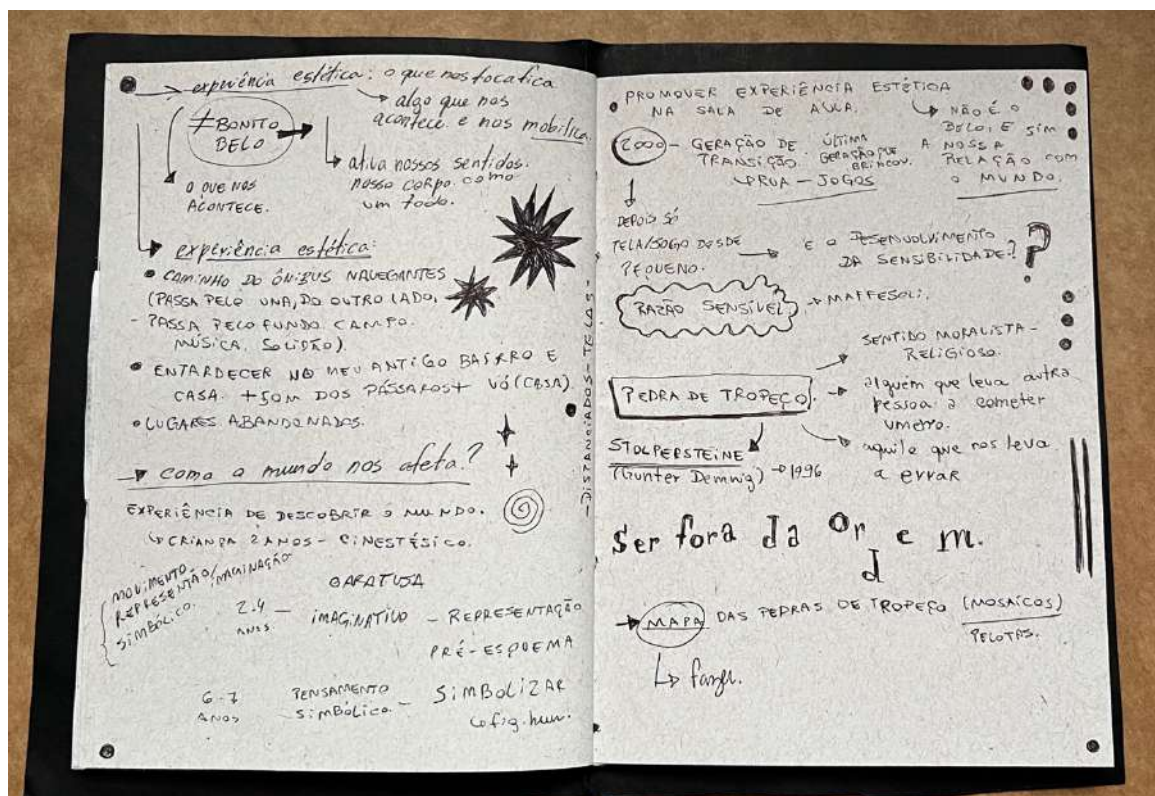 experiência estética: o que nos toca fica
algo que nos
acontece e nos mobiliza.
≠ BONITO
BELO
ativa nossos sentidos.
nosso corpo como
um todo.
O QUE NOS
ACONTECE.
experiência estética:
CAMINHO DO ÔNIBUS NAVEGANTES
(PASSA PELO UNA, DO OUTRO LADO,
- PASSA PELO FUNDO CAMPO.
MÚSICA, SOLIDÃO).
ENTARDECER NO MEU ANTIGO BAIRRO E
CASA. + SOM DOS PÁSSAROS + VÓ (CASA).
LUGARES ABANDONADOS.
como o mundo nos afeta?
EXPERIÊNCIA DE DESCOBRIR O MUNDO.
CRIANÇA 2 ANOS - CINESTÉSICO.
MOVIMENTO
REPRESENTAÇÃO/IMAGINAÇÃO
SIMBÓLICO.
GARATUJA
2.4 ANOS — IMAGINATIVO - REPRESENTAÇÃO
PRÉ-ESQUEMA
6-7 ANOS PENSAMENTO SIMBÓLICO - SIMBOLIZAR
Cofig. hum.
- DISTANCIADOS - TELAS -
PROMOVER EXPERIÊNCIA ESTÉTICA
NA SALA DE AULA.
NÃO É O
BELO, E SIM
A NOSSA
RELAÇÃO COM
O MUNDO.
2000 - GERAÇÃO DE TRANSIÇÃO.
ÚLTIMA
GERAÇÃO QUE
BRINCOU.
RUA - JOGOS
DEPOIS SÓ
TELA/JOGO DESDE
PEQUENO.
E O DESENVOLVIMENTO
DA SENSIBILIDADE?
?
RAZÃO SENSÍVEL MAFFESOLI.
SENTIDO MORALISTA -
RELIGIOSO.
PEDRA DE TROPEÇO.
alguém que leva outra
pessoa a cometer
um erro.
aquilo que nos leva
a errar
STOLPERSTEINE
(Gunter Demnig) 1996
Ser fora da Ordem.
MAPA DAS PEDRAS DE TROPEÇO (MOSAÍCOS)
PELOTAS.
fazer.